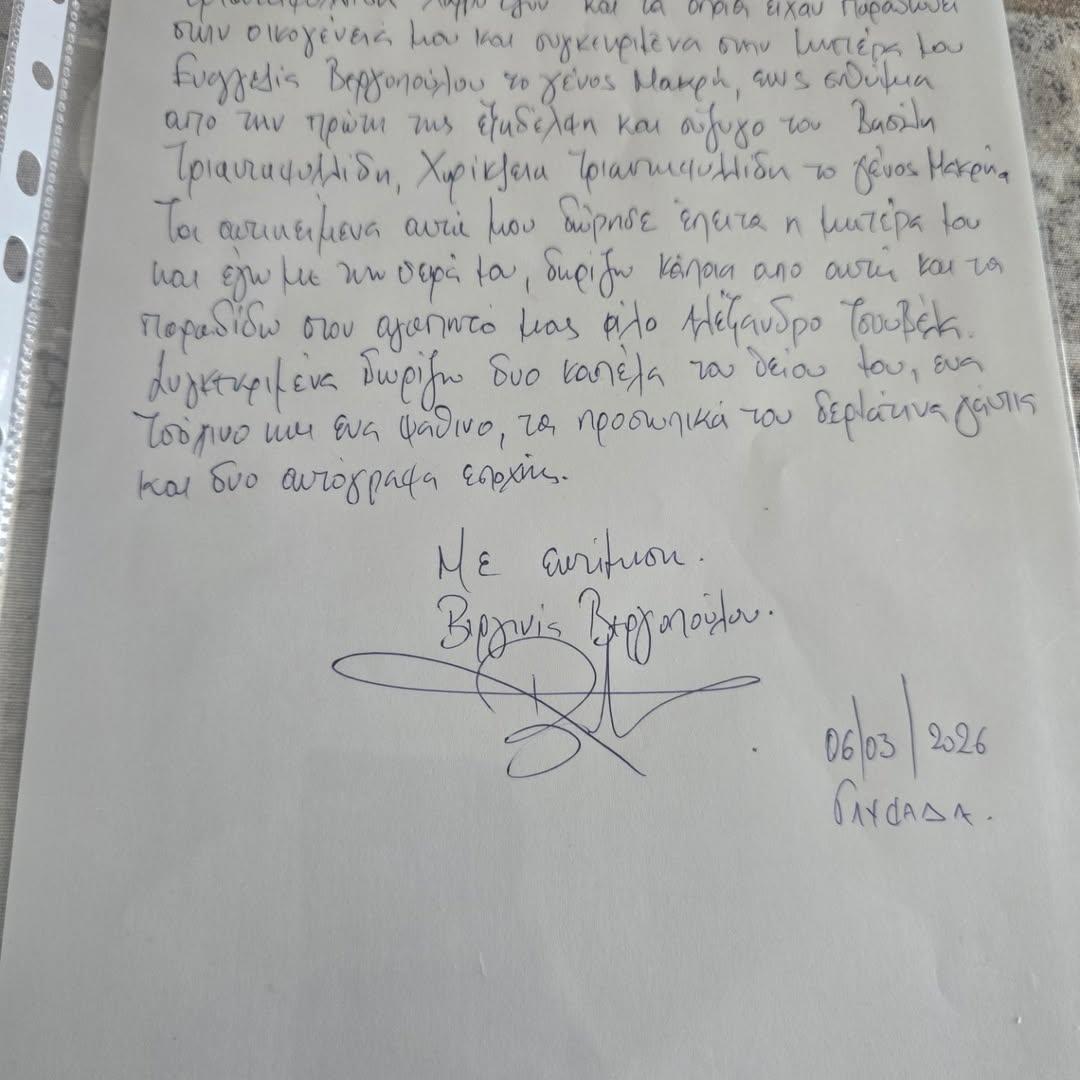 και τα οποία είχαν παραδώσει
στην οικογένειά μου και συγκεκριμένα στην μητέρα μου
Ευαγγελία Βεργοπούλου το γένος Μακρή, ως ενθύμια
από την πρώτη της εξαδέλφη και σύζυγο του Βασίλη
Τριανταφυλλίδη, Χαρίκλεια Τριανταφυλλίδη το γένος Μακρή.
Τα αντικείμενα αυτά μου δώρησε έπειτα η μητέρα μου
και εγώ με την σειρά μου, δωρίζω κάποια απο αυτά και τα
παραδίδω στον αγαπητό μας φίλο Αλέξανδρο Τσουβέλα.
Συγκεκριμένα δωρίζω δυο καπέλα του θείου μου, ενα
τσόχινο και ενα ψάθινο, τα προσωπικά του δερμάτινα γάντια
και δυο αυτόγραφα εποχής.
Με εκτίμηση.
Βιργινία Βεργοπούλου.
06/03/2026
ΓΛΥΦΑΔΑ.